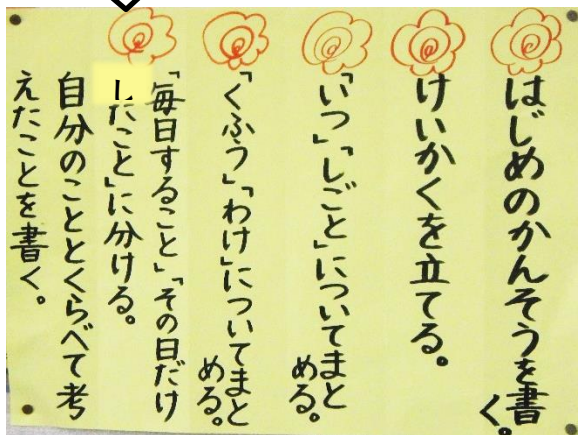 はじめのかんそうを書
く。
けいかくを立てる。
「いつ」「しごと」についてまと
める。
「くふう」「わけ」についてまと
める。
「毎日すること」「その日だけ
したこと」に分ける。
自分のこととくらべて考
えたことを書く。